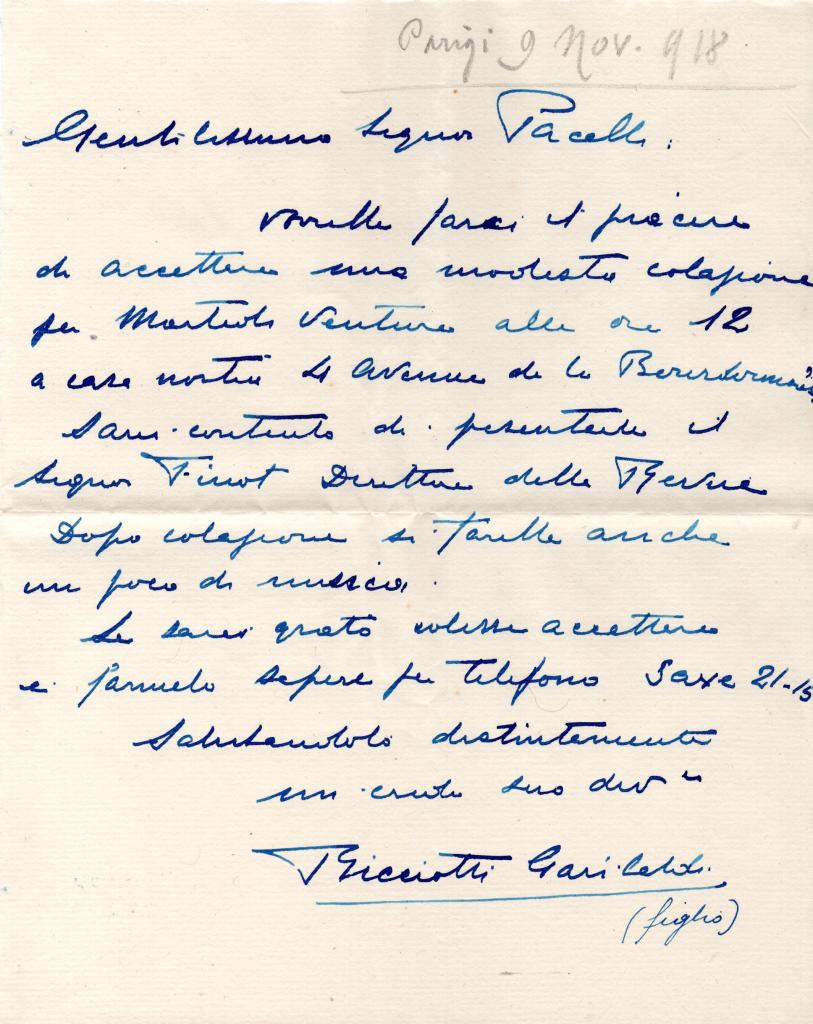 Parigi 9 Nov. 918
Gentilissimo Signor Pacelli:
vorrebbe farci il piacere
di accettare una modesta colazione
per Martedi Venturo alle ore 12
a casa nostra 4 Avenue de la Bourdonnais
Sarei contento di presentarle il
Signor Finot Direttore della Revue
Dopo colazione si farebbe anche
un poco di musica.
Le sarei grato volesse accettare
e farmelo sapere per telefono Saxe 21-15
Salutandolo distintamente
mi creda suo dev mo
Ricciotti Garibaldi
(figlio)